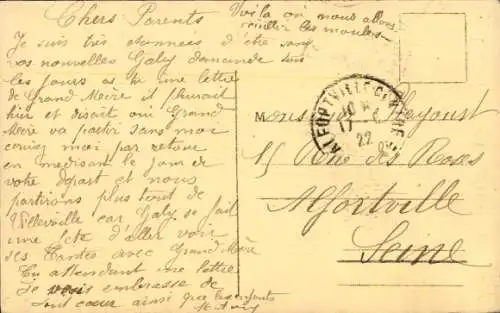 Chers Parents
Voilà où nous allons
cueillir les moules
Je suis très étonnée d'être sans
vos nouvelles Gaby demande tous
les jours as tu une lettre
de Grand Mère il pleurait
hier et disait oui Grand
Mère va partir sans moi
écrivez moi par retour
en me disant le jour de
votre départ et nous
partirons plus tard de
Villerville car Gaby se fait
une fête d'aller voir
ses Tantes avec Grand Mère
En attendant une lettre
Je vous embrasse de
tout cœur ainsi que les enfants
M
ALFORTVILLE CENTRE
10
17
22
Monsieur
15 Rue des Roses
Alfortville
Seine